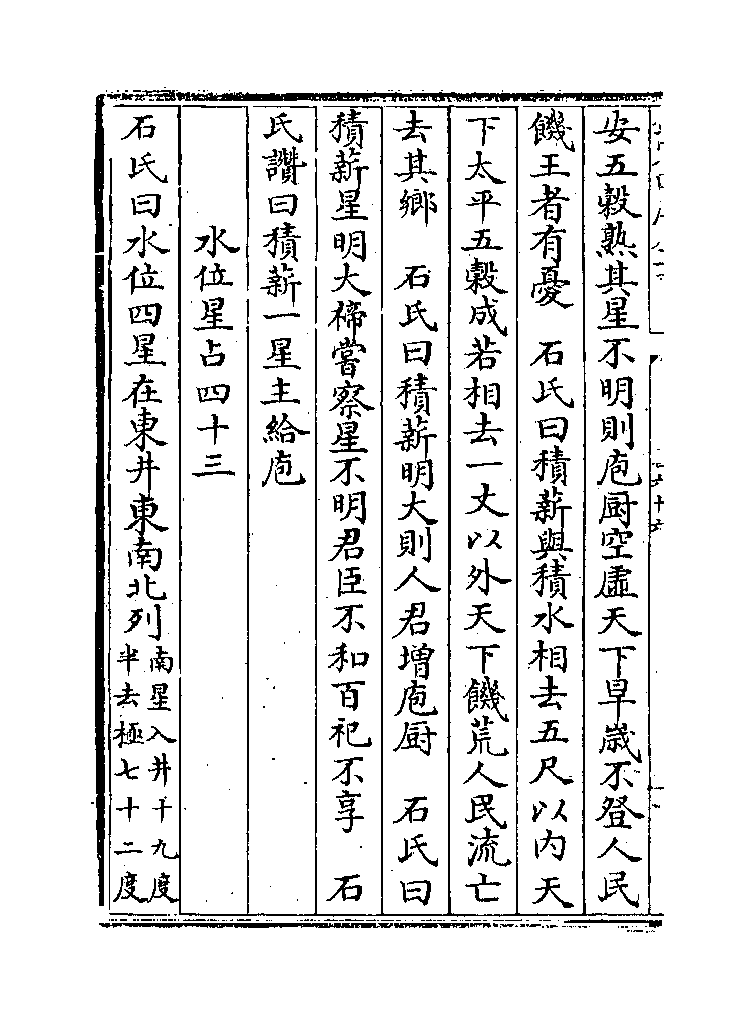 安五榖熟其星不明則庖厨空虛天下旱嵗不登人民
饑王者有憂　石氏曰積薪與積水相去五尺以内天
下太平五榖成若相去一丈以外天下饑荒人民流亡
去其鄉　石氏曰積薪明大則人君增庖厨　石氏曰
積薪星明大禘嘗察星不明君臣不和百祀不享　石
氏讚曰積薪一星主給庖
水位星占四十三
石氏曰水位四星在東井東南北列南星入井十九度
半去極七十二度